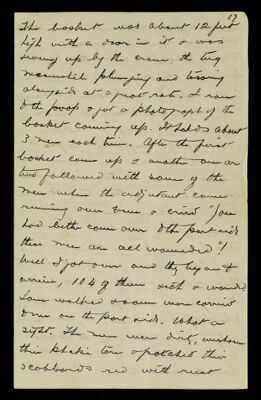 17
The basket was about 12 feet
high with a door in it & was
swung up by the crane, the tug
meanwhile plunging and tossing
alongside at a great rate. I ran
to the poop & got a photograph of the
basket coming up. It holds about
3 men each time. After the first
basket came up & another one or
two followed with some of the
men when the adjutant came
running over to me & cried "You
had better come over to the port side
these men are all wounded"!
Well I got over and they began to
arrive, 104 of them sick & wounded
Some walked & some were carried
down on the port side. What a
sight. The men were dirty, unshaven
their khaki torn & patched their
scabbards red with rust